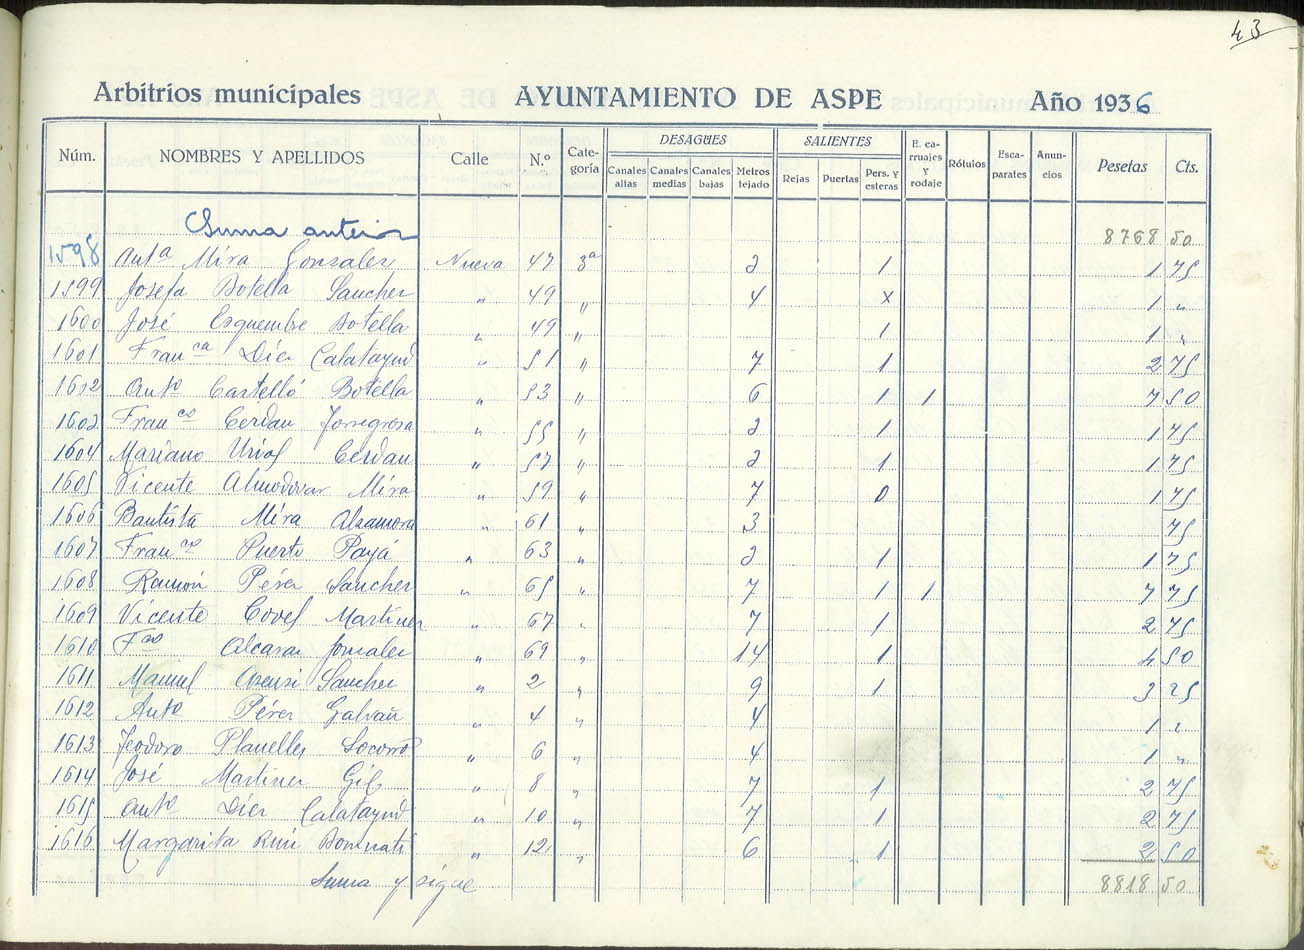 43
Arbitrios municipales AYUNTAMIENTO DE ASPE Año 1936
Núm. NOMBRES Y APELLIDOS Calle N.º Cate-goría DESAGÜES Canales altas Canales medias Canales bajas Metros tejado SALIENTES Rejas Puertas Pers. y esteras E. ca-rruajes y rodaje Rótulos Esca-parates Anun-cios Pesetas Cts.
Suma anterior 8768 50
1598 Antª Mira Gonzalez Nueva 47 3ª 2 1 1 75
1599 Josefa Botella Sanchez " 49 " 4 x 1 "
1600 José Esquembre Botella " 49 " 1 1 "
1601 Franca Díez Calatayud " 51 " 7 1 2 75
1602 Anto Castelló Botella " 53 " 6 1 1 7 50
1603 Franco Cerdan Torregrosa " 55 " 2 1 1 75
1604 Mariano Uriol Cerdan " 57 " 2 1 1 75
1605 Vicente Almodovar Mira " 59 " 7 0 1 75
1606 Bautista Mira Alzamora " 61 " 3 75
1607 Franco Puerto Payá " 63 " 2 1 1 75
1608 Ramón Pérez Sanchez " 65 " 7 1 1 7 75
1609 Vicente Covel Martinez " 67 " 7 1 2 75
1610 Fco Alcaraz Gonzalez " 69 " 14 1 4 50
1611 Manuel Asensi Sanchez " 2 " 9 1 3 25
1612 Anto Pérez Galvañ " 4 " 4 1 "
1613 Teodoro Planelles Socorro " 6 " 4 1 "
1614 José Martinez Gil " 8 " 7 1 2 75
1615 Anto Díez Calatayud " 10 " 7 1 2 75
1616 Margarita Bonmatí " 12 " 6 1 2 50
Suma y sigue 8818 50